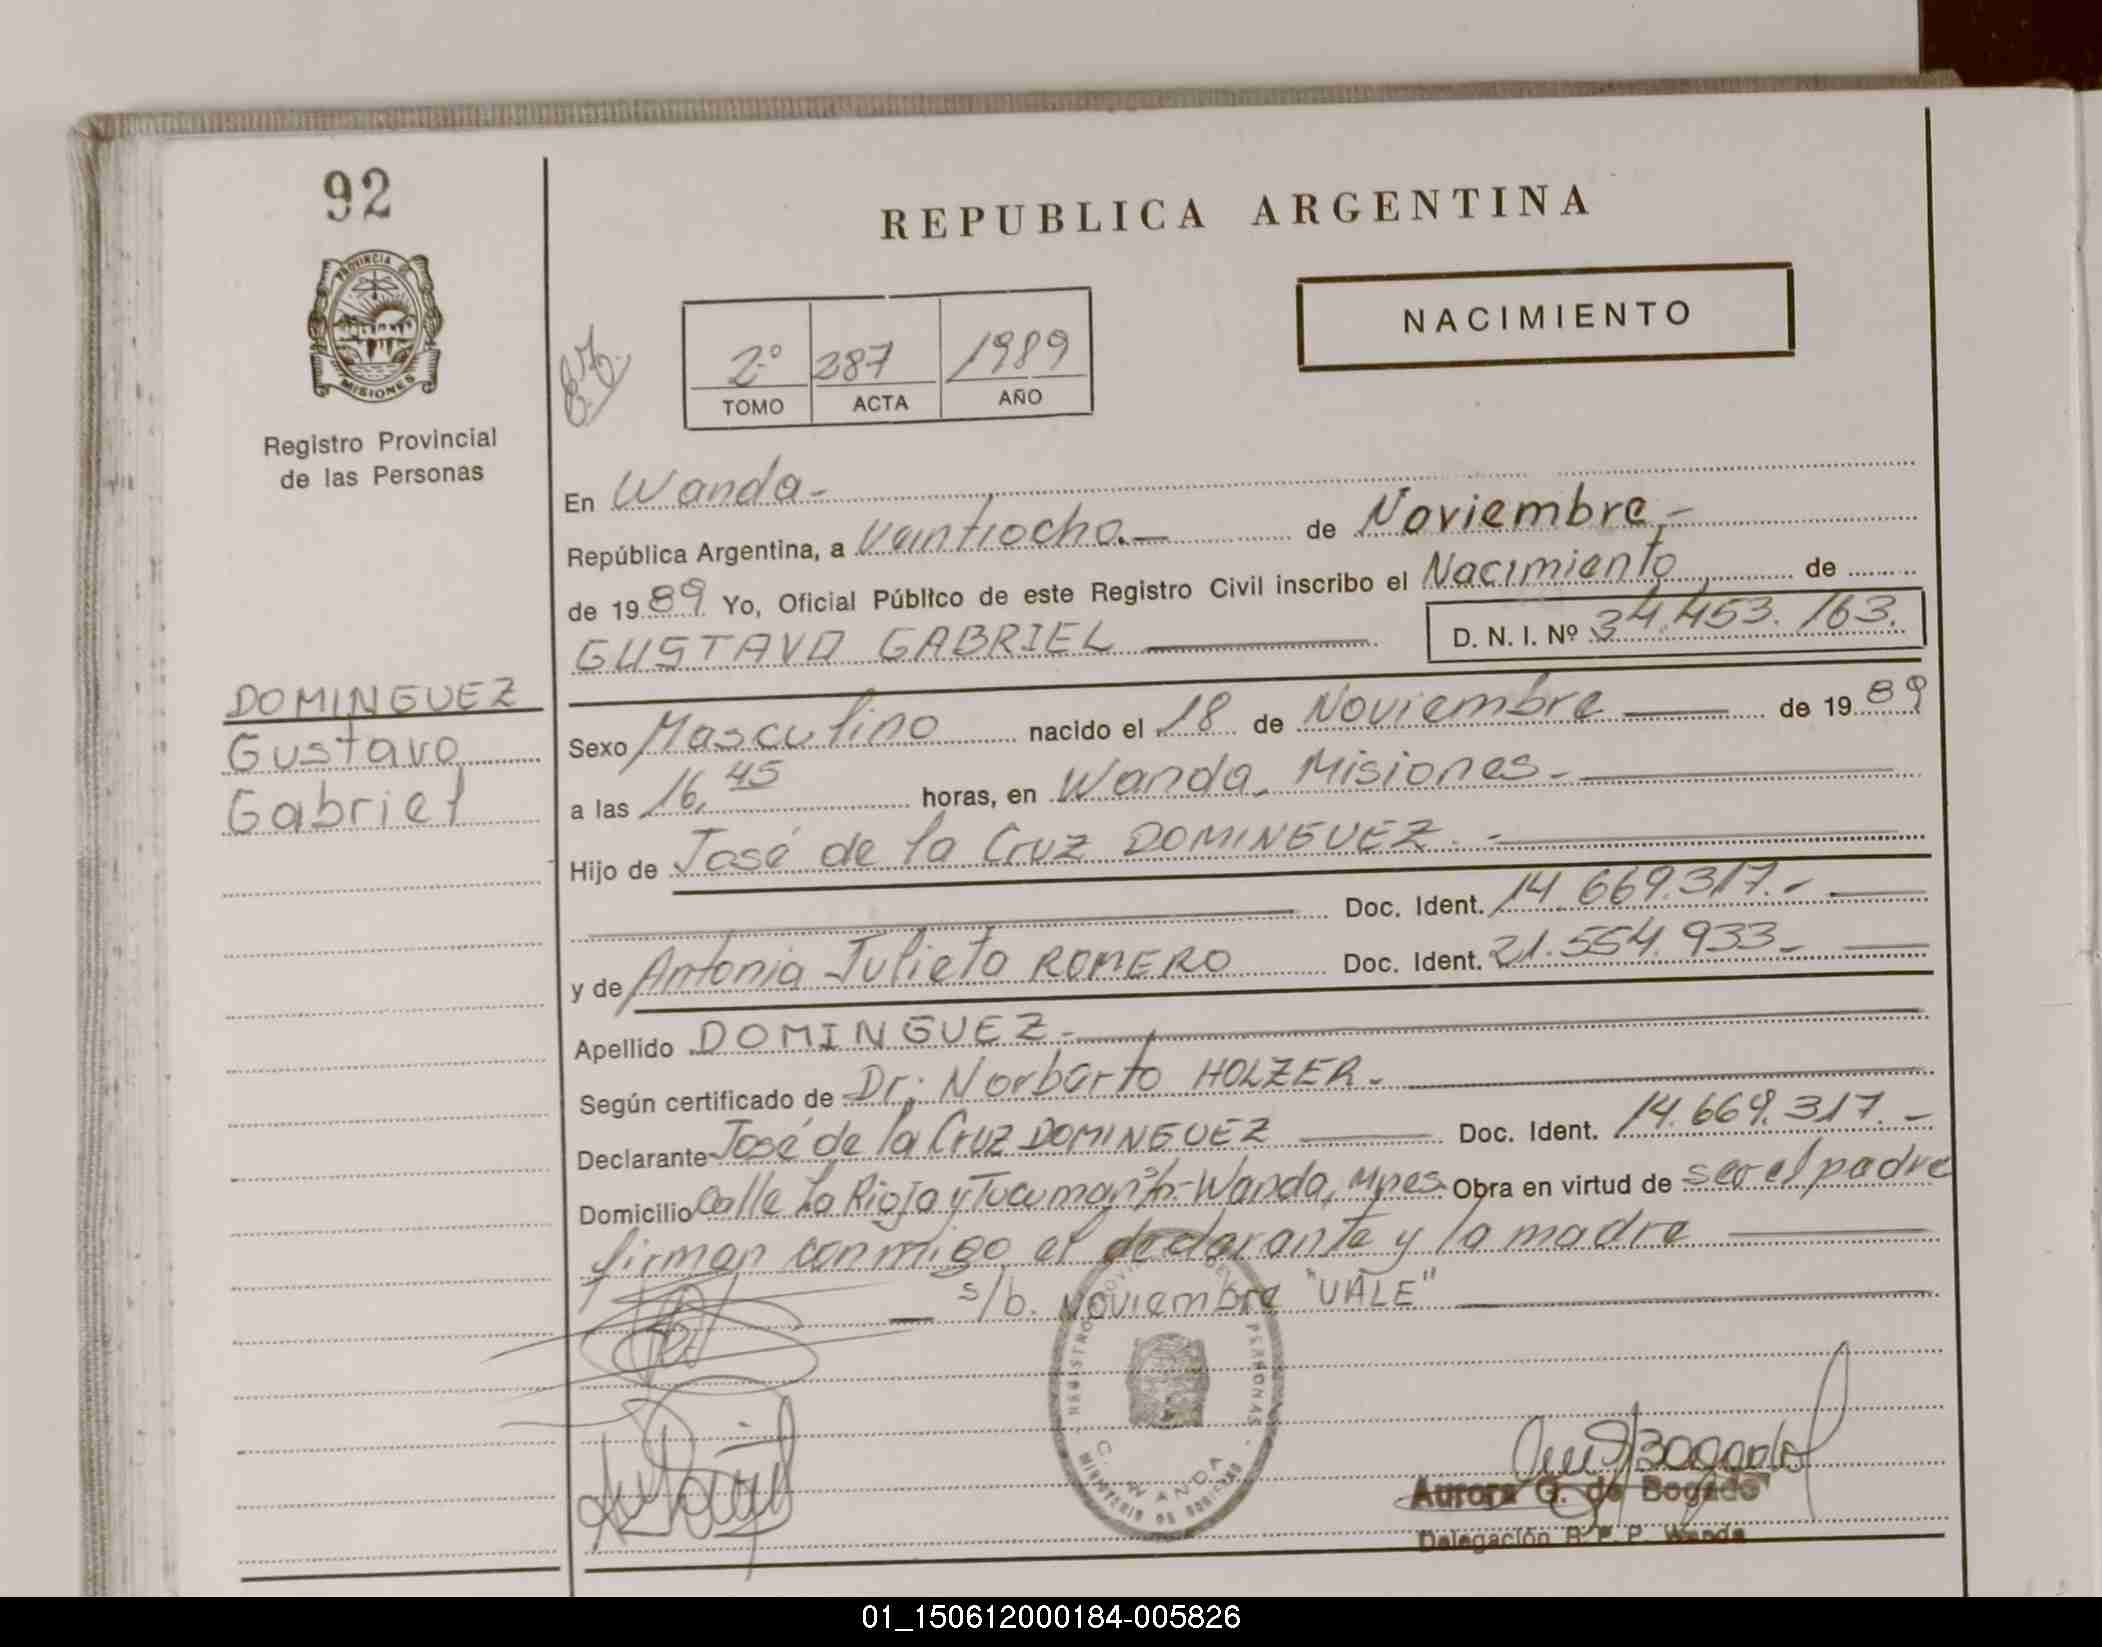 92
REPUBLICA ARGENTINA
PROVINCIA DE
MISIONES
NACIMIENTO
2º 287 1989
TOMO ACTA AÑO
Registro Provincial
de las Personas
En Wanda-
República Argentina, a Veintiocho.— de Noviembre.-
de 1989 Yo, Oficial Público de este Registro Civil inscribo el Nacimiento de
GUSTAVO GABRIEL D. N. I. Nº 34.453.163.
DOMINGUEZ
Gustavo
Gabriel
Sexo Masculino nacido el 18 de Noviembre de 1989
a las 16,45 horas, en Wanda. Misiones.-
Hijo de José de la Cruz DOMINGUEZ.-
Doc. Ident. 14.669.317.-
y de Antonia Julieta ROMERO Doc. Ident. 21.554.933-
Apellido DOMINGUEZ-
Según certificado de Dr: Norberto HOLZER.-
Declarante José de la Cruz DOMINGUEZ Doc. Ident. 14.669.317.-
Domicilio Calle La Rioja y Tucuman s/n-Wanda, Mnes Obra en virtud de ser el padre
firman conmigo el declarante y la madre
— s/b. Noviembre "VALE"
REGISTRO PROVINCIAL DE LAS PERSONAS
WANDA
MINISTERIO DE GOBIERNO
Aurora G. de Bogado
Delegación R. P. P. Wanda
01_150612000184-005826